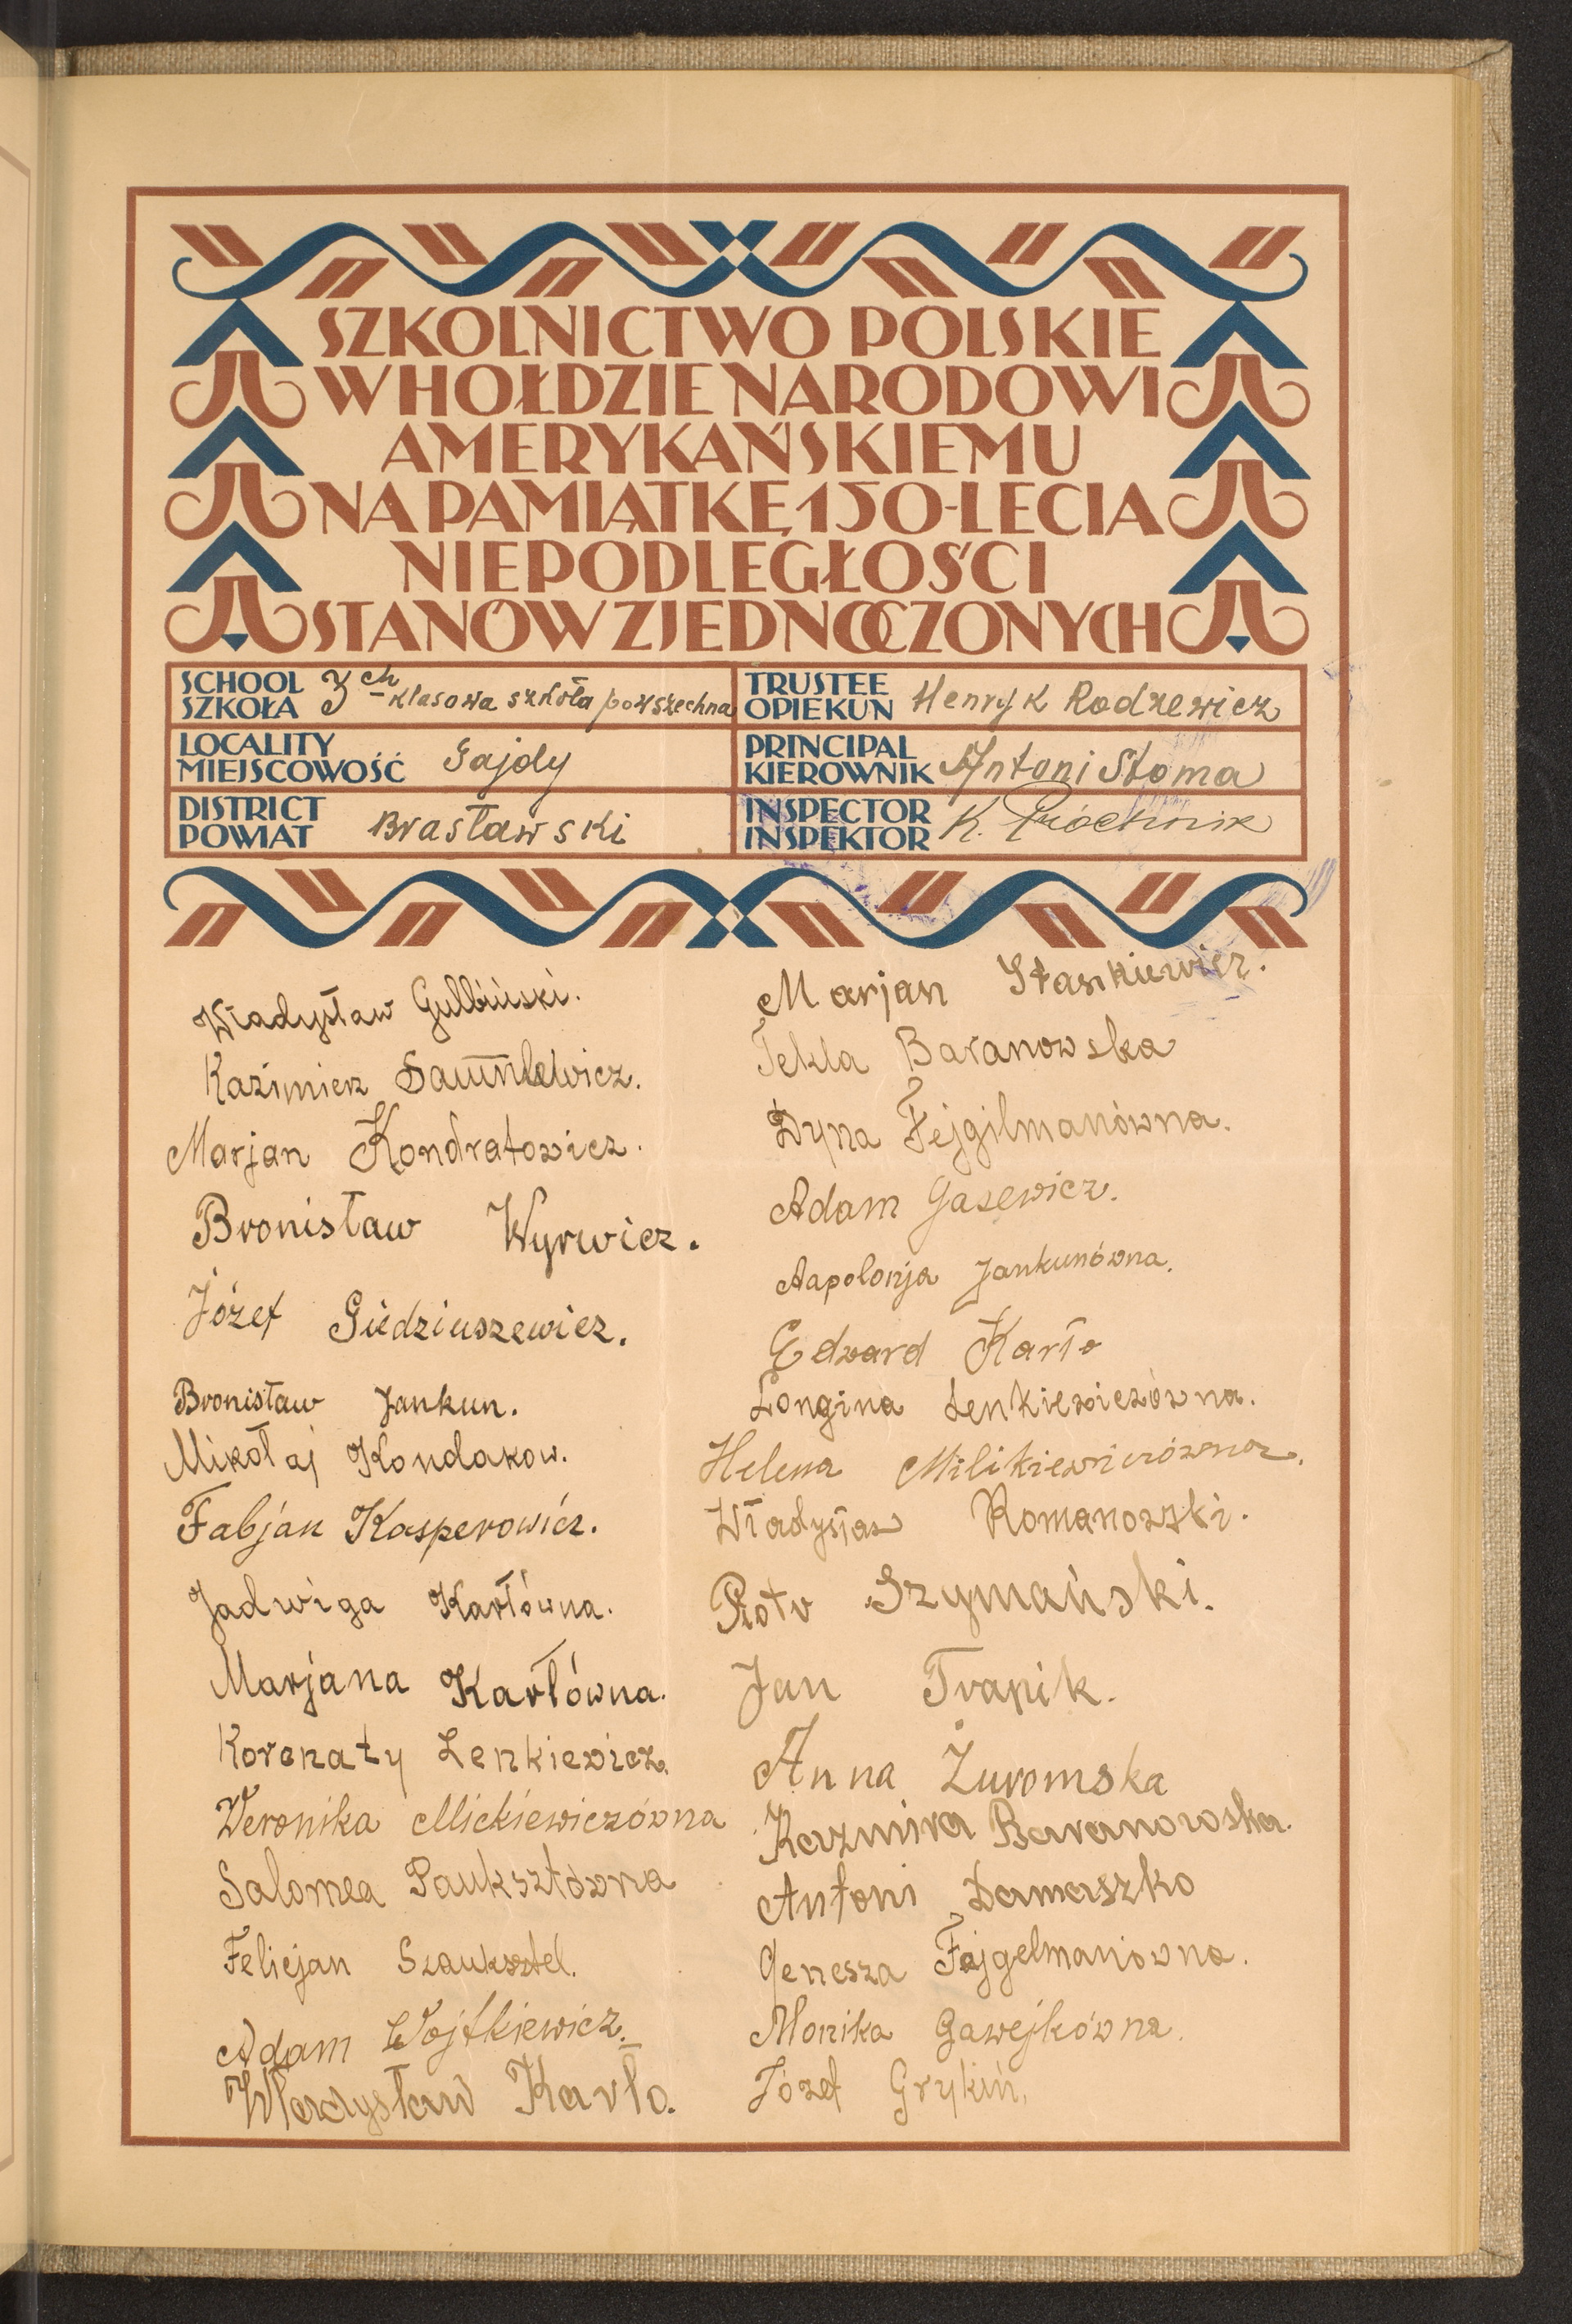 SZKOLNICTWO POLSKIE
W HOŁDZIE NARODOWI
AMERYKAŃSKIEMU
NA PAMIĄTKĘ 150-LECIA
NIEPODLEGŁOŚCI
STANÓW ZJEDNOCZONYCH
SCHOOL
SZKOŁA
3ch klasowa szkoła powszechna
TRUSTEE
OPIEKUN
Henryk Rodzewicz
LOCALITY
MIEJSCOWOŚĆ
Gajdy
PRINCIPAL
KIEROWNIK
Antoni Słoma
DISTRICT
POWIAT
Brasławski
INSPECTOR
INSPEKTOR
K. Próchnik
Władysław Gulbiński.
Kazimierz
Marjan Kondratowicz.
Bronisław Wyrwicz.
Józef Giedziuszewicz.
Bronisław Jankun.
Mikołaj Kondakow.
Fabjan Kasperowicz.
Jadwiga Karłówna.
Marjana Karłówna.
Koronaty Lenkiewicz.
Weronika Mickiewiczówna
Salomea Pauksztówna
Felicjan Szauksztel.
Adam Wojtkiewicz.
Władysław Karło.
Marjan Stankiewicz.
Tekla Baranowska
Dyna Fejgilmanówna.
Adam Gasewicz.
Aapolonja Jankunówna.
Edward Karło
Longina Lenkiewiczówna.
Helena Milikiewiczówna.
Władysław Romanowski.
Piotr Szymański.
Jan Trapik.
Anna Żuromska
Kazmira Baranowska.
Antoni Damaszko
Genesza Fajgelmanówna.
Monika Gawejkówna.
Józef Grykiń.